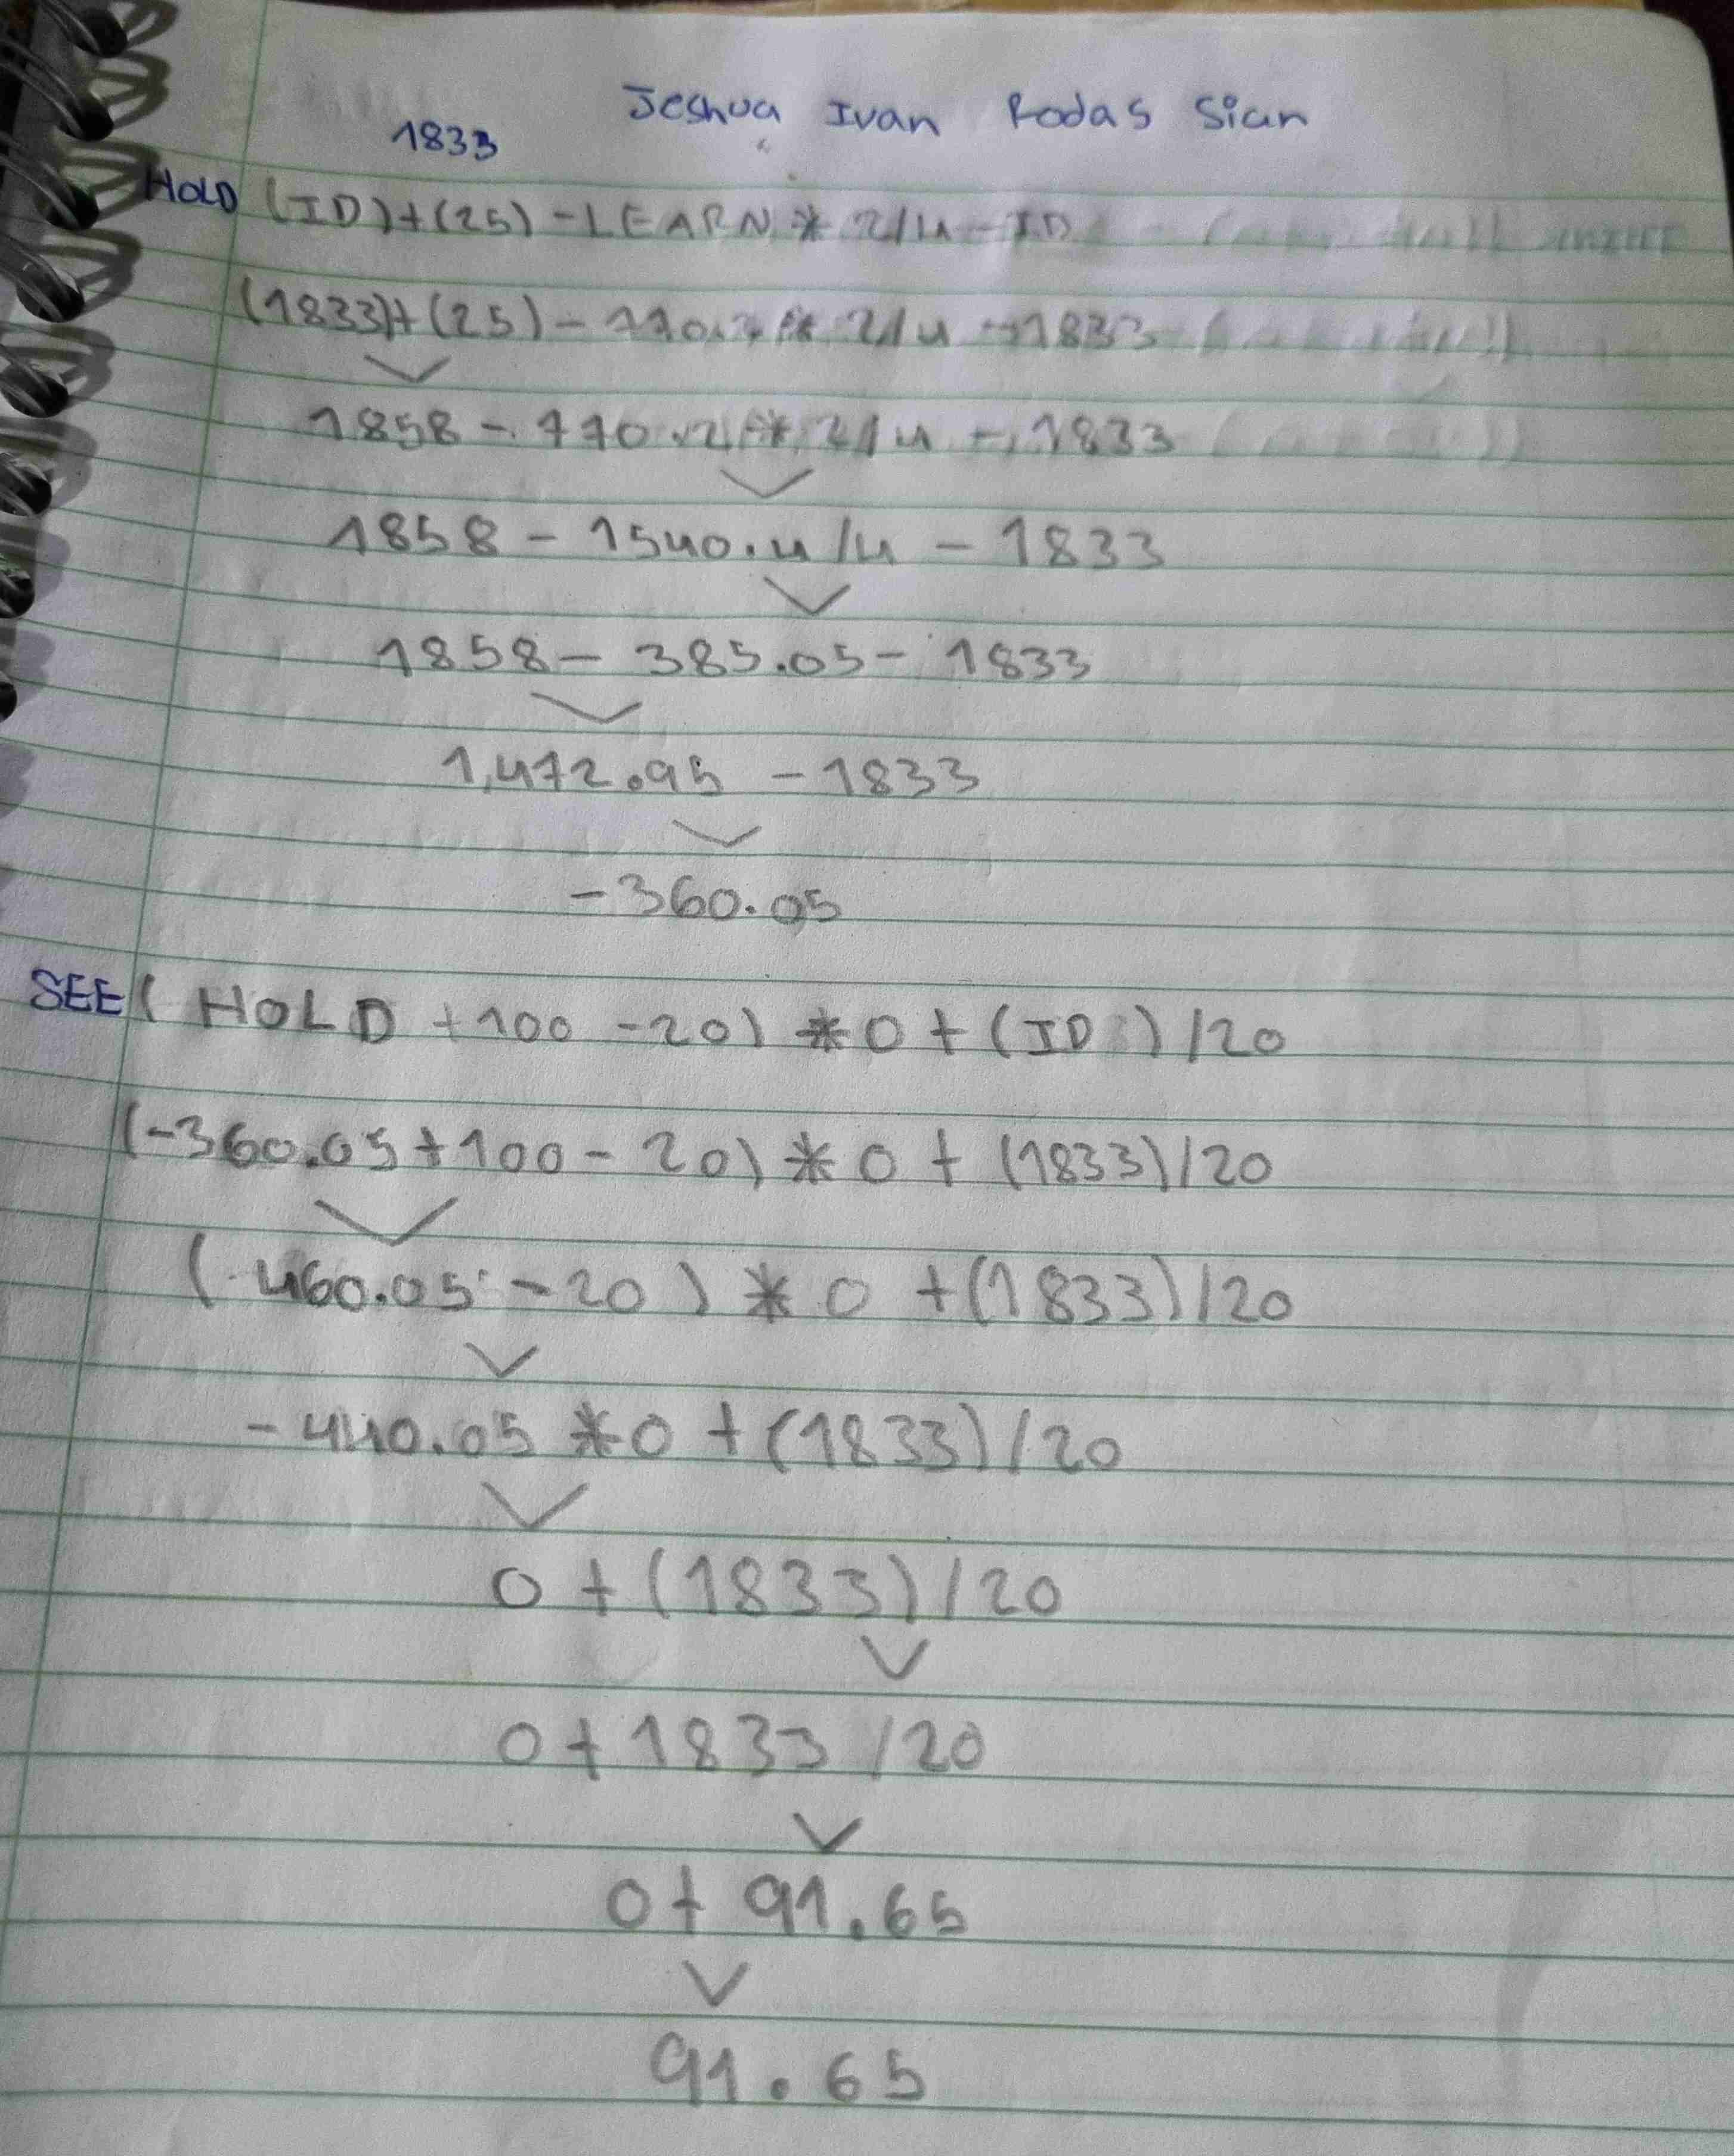 Jeshua Ivan Rodas Sian
1833
HOLD (ID)+(25)-LEARN * 2/4 - ID
(1833)+(25) - 770.2 * 2/4 - 1833
1858 - 770.2 * 2/4 - 1833
1858 - 1540.4/4 - 1833
1858 - 385.05 - 1833
1,472.95 - 1833
-360.05
SEE ( HOLD +100 -20) * 0 + (ID) /20
(-360.05+100 - 20) * 0 + (1833)/20
(-460.05 -20 ) * 0 +(1833)/20
-440.05 *0 + (1833)/20
0 + (1833)/20
0 + 1833 /20
0 + 91.65
91.65